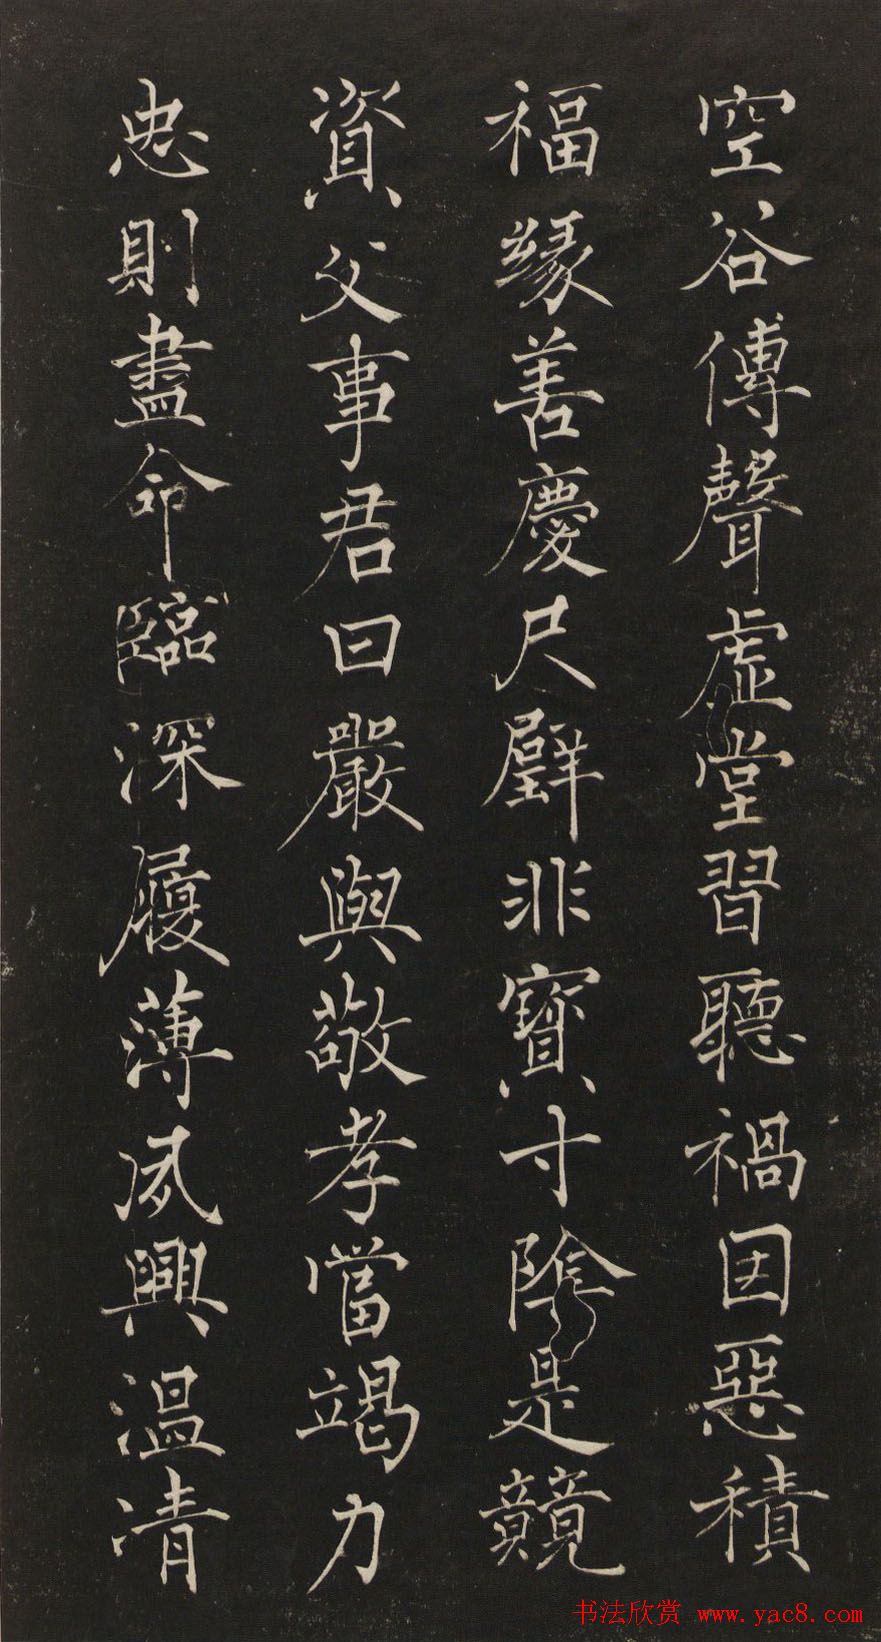 空谷傅聲虛堂習聽禍因惡積
福緣善慶尺璧非寶寸陰是競
資父事君曰嚴與敬孝當竭力
忠則盡命臨深履薄夙興温凊
书法欣赏 www.yac8.com